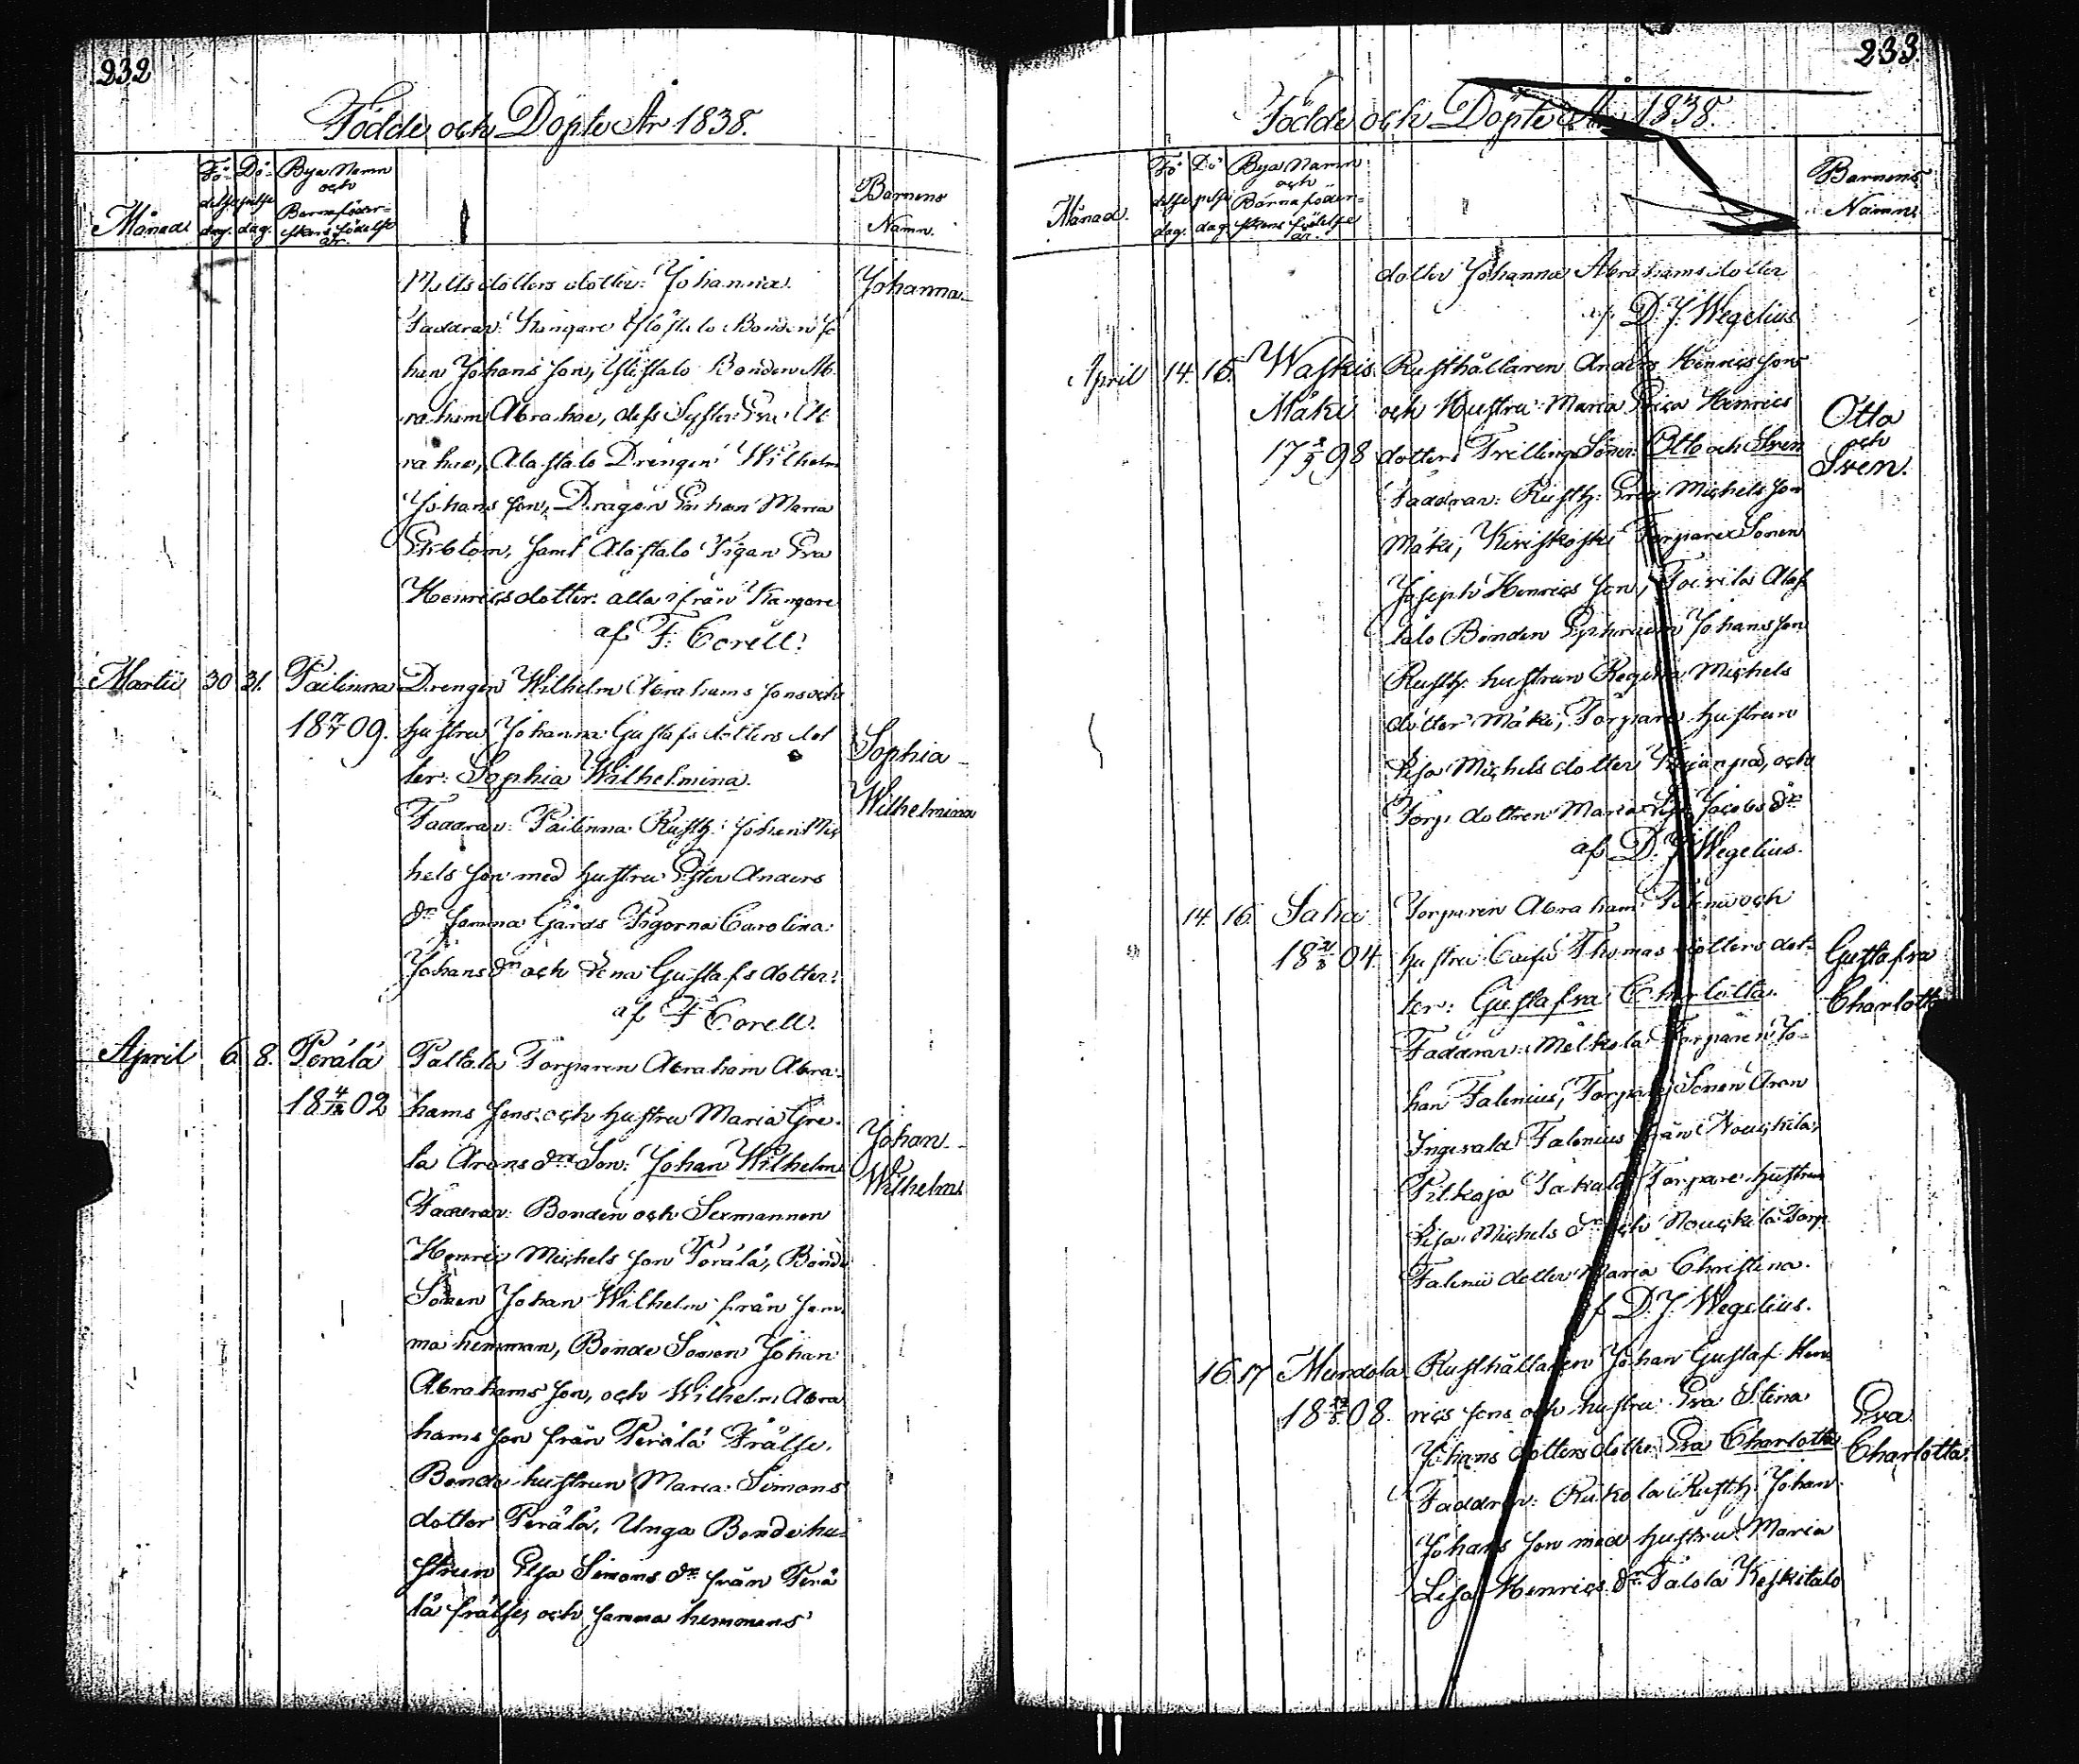 232
Födde och Döpte År 1838.
Månad
Fö-
delse
dag.
Dö-
pelse
dag.
Bya Namn
och
Barnaföder-
skans födelse
år
Barnens
Namn.
Matts dotters dotter: Johanna.
Johanna
Faddrar: Kangare Bonden Jo
han Johans son, Bonden Ab-
raham Abrahae, dess Syster Eva Ab
rahae, Alastalo Drengen Wilhelm
Johans son, Dragon Enkan Maria
samt Alastalo Pigan Eva
Henricsdotter: alla ifrån Kangare
af F: Corell.
Martii 30 31. Pailinna Drengen Wilhelm Abrahams Sons och
18 09. hustru Johanna Gustafs dotters dot
ter: Sophia Wilhelmina.
Sophia
Wilhelmina
Faddrar: Pailinna Rusth: Johan Mic
hels son med hustru Ester Anders
dr samma Gårds Pigorna Carolina
Johans dr och Lena Gustafs dotter:
af F Corell.
April 6. 8. Perälä Paltala Torparen Abraham Abra-
18 4/12 02 hams Sons och hustru Maria Gre-
ta Arons drs Son: Johan Wilhelm
Johan
Wilhelm
Faddrar: Bonden och Sexmannen
Henric Michels son Perälä, Bonde
Sonen Johan Wilhelm från sam-
ma hemman, Bonde Sonen Johan
Abrahams son, och Wilhelm Abra
hams son från Perälä Frälse,
Bonde hustrun Maria Simons
dotter Perälä, Unga Bonde hu-
strun Elsa Simons dr från Perä
lä frälse, och samma hemmans
233.
Födde och Döpte År 1838.
Månad.
Fö
delse
dag.
Dö
pelse
dag
Bya Namn
och
Barnaföder-
skans födelse
år.
Barnens
Namn.
dotter Johanna Abrahamsdotter
af D. J. Wegelius
April 14. 15. Waskis Rusthållaren Anders Henrics Sons
Mäki och Hustru Maria Erica Henrics
17 98 dotters Trilling Söner: Otto och Sven
Otto
och
Sven.
Faddrar: Rusth: Eric Michels son
Mäki, Kiviskoski Torpare Sonen
Joseph Henrics son, Alas
talo Bonden Ephraim Johans son
Rusth: hustrun Regina Michels
dotter Mäki, Torpare hustrun
Lisa Michels dotter och
Torp: dottren Maria Lisa Jacobs dr
af D. J. Wegelius.
14. 16. Saha Torparen Abraham och
18 04. hustru Caisa Thomas dotters dot-
ter: Gustafva Charlotta.
Gustafva
Charlotta
Faddrar: Torparen Jo-
han Falenius, Torpare Sonen Aron
Ingevald Falenius från Nouckila,
Torpare hustrun
Lisa Michels dr och Nouckila Torp
Falenii dotter Maria Christina.
af D. J. Wegelius.
16 17 Mundola Rusthållaren Johan Gustaf Hen
18 08. rics sons och hustru Eva Stina
Johans dotters dotter Eva Charlotta
Eva
Charlotta.
Faddrar: Rikola Rusth: Johan
Johans son med hustru Maria
Lisa Henrics dr Talola Keskitalo